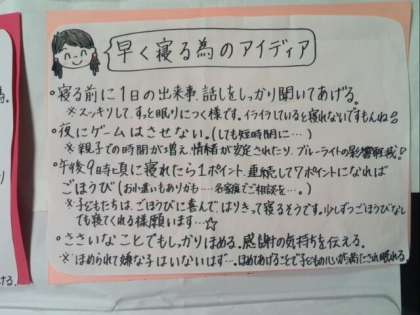 早く寝る為のアイディア
○寝る前に1日の出来事、話しをしっかり聞いてあげる。
※スッキリして、すっと眠りにつく様です。イライラしていると寝れないですもんね
○夜にゲームはさせない。(しても短時間に…。)
※親子での時間が増え、情緒が安定されたり、ブルーライトの影響軽減!
○午後9時頃に寝れたら1ポイント、連続して7ポイントになれば
ごほうび(お小遣いもありかも…各家庭でご相談を…。)
※子どもたちは、ごほうびに喜んで、はりきって寝るそうです。少しずつごほうびなし
でも寝てくれる様願います…☆
○ささいなことでもしっかりほめる。感謝の気持ちを伝える。
※ほめられて嫌な子はいないはず…。ほめてあげることで子どもの心が満たされ眠れる